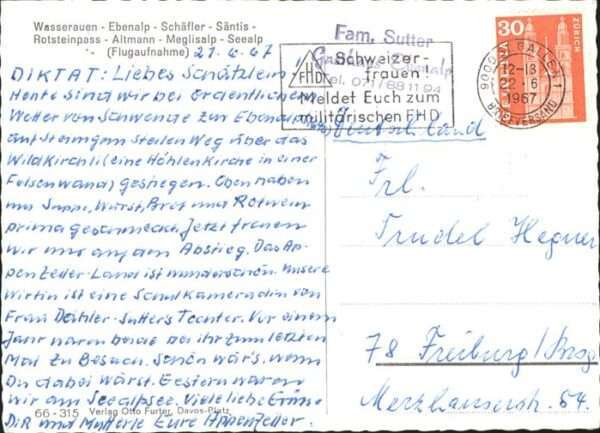 Wasserauen - Ebenalp - Schäfler - Säntis -
Rotsteinpass - Altmann - Meglisalp - Seealp
(Flugaufnahme) 21-6-67
Fam. Sutter
Tel. 071/88 11 94
FHD
Schweizer-
frauen
Meldet Euch zum
militärischen FHD
9000 ST. GALLEN 1
12-13
22-6
1967
BRIEFVERSAND
30
ZÜRICH
DIKTAT: Liebes Schätzlein!
Heute sind wir bei ordentlichem
Wetter von Schwende zur Ebenalp
auf steinigem steilen Weg über das
Wildkirchli (eine Höhlenkirche in einer
Felsenwand) gestiegen. Oben haben
uns Suppe, Wurst, Brot und Rotwein
prima geschmeckt. Jetzt freuen
wir uns auf den Abstieg. Das Ap-
penzeller-Land ist wunderschön. Unsere
Wirtin ist eine Schulkameradin von
Frau Dähler-Sutters Tochter. Vor einem
Jahr waren beide bei ihr zum letzten
Mal zu Besuch. Schön wär's, wenn
Du dabei wärst. Gestern waren
wir am Seealpsee. Viele liebe Grüße
Dir und Mutterle Eure Appenzeller.
Deutschland
Frl.
Trudel Hegner
78 Freiburg/Brsg
Merzhauserstr. 54.
66-315 Verlag Otto Furter, Davos-Platz